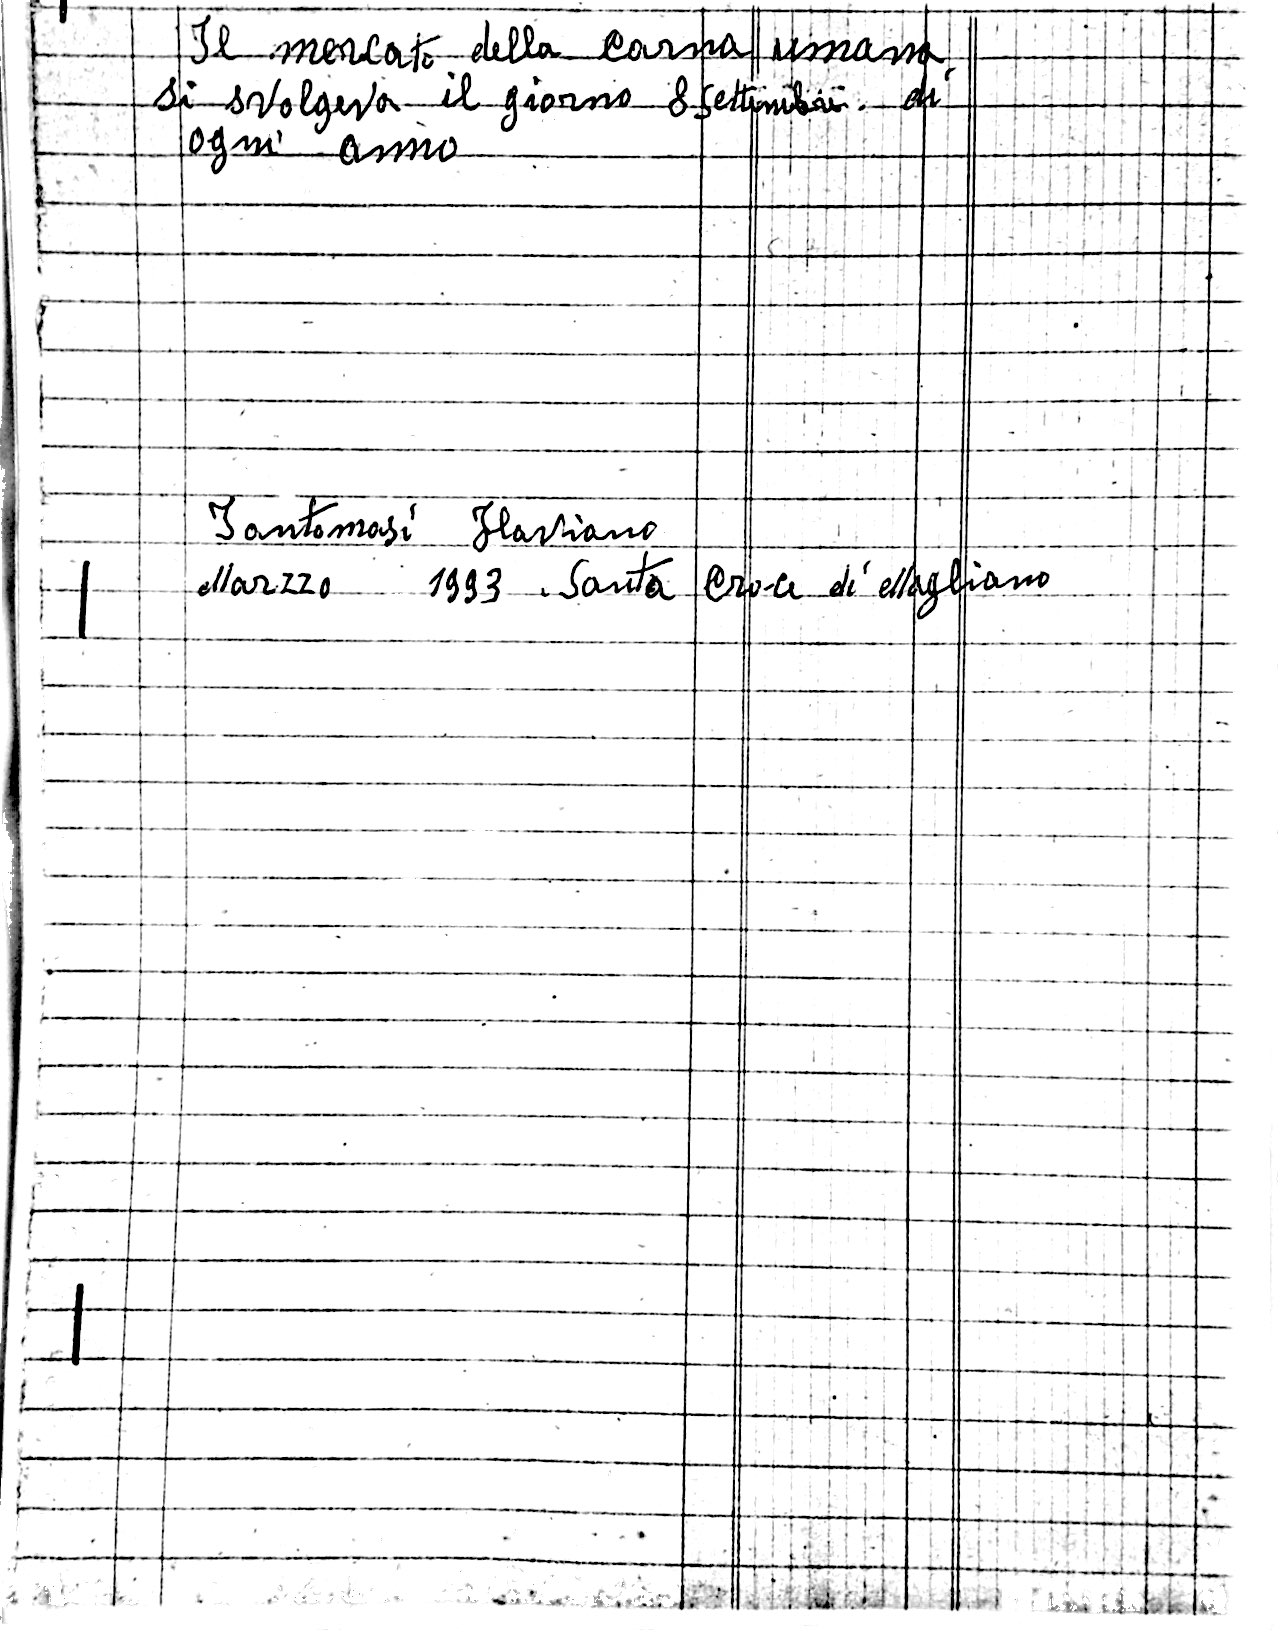 Il mercato della carna umana
si svolgeva il giorno 8 settembre. di
ogni anno
Iantomasi Flaviano
Marzzo 1993. Santa Croce di Magliano